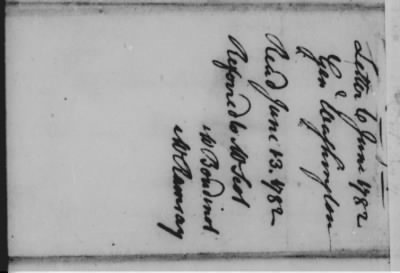 Letter 6 June 1782
Genl Washington
Read June 13. 1782
Referred to Mr Lee
Mr Boudinot
Mr Ramsay